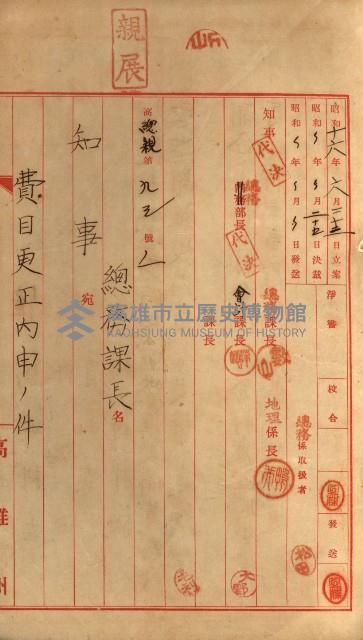 親展
昭和十六年六月二十五日立案
昭和〃年〃月二十五日決裁
昭和〃年〃月〃日發送
淨書
校合
發送
知事
代決
總務部長
代決
總務課長
會計課長
課長
地理係長
總務係取扱者
松田
大野
高總親第九三號ノ
知事宛
總務課長名
費目更正內申ノ件
高雄州
高雄市立歷史博物館
KAOHSIUNG MUSEUM OF HISTORY